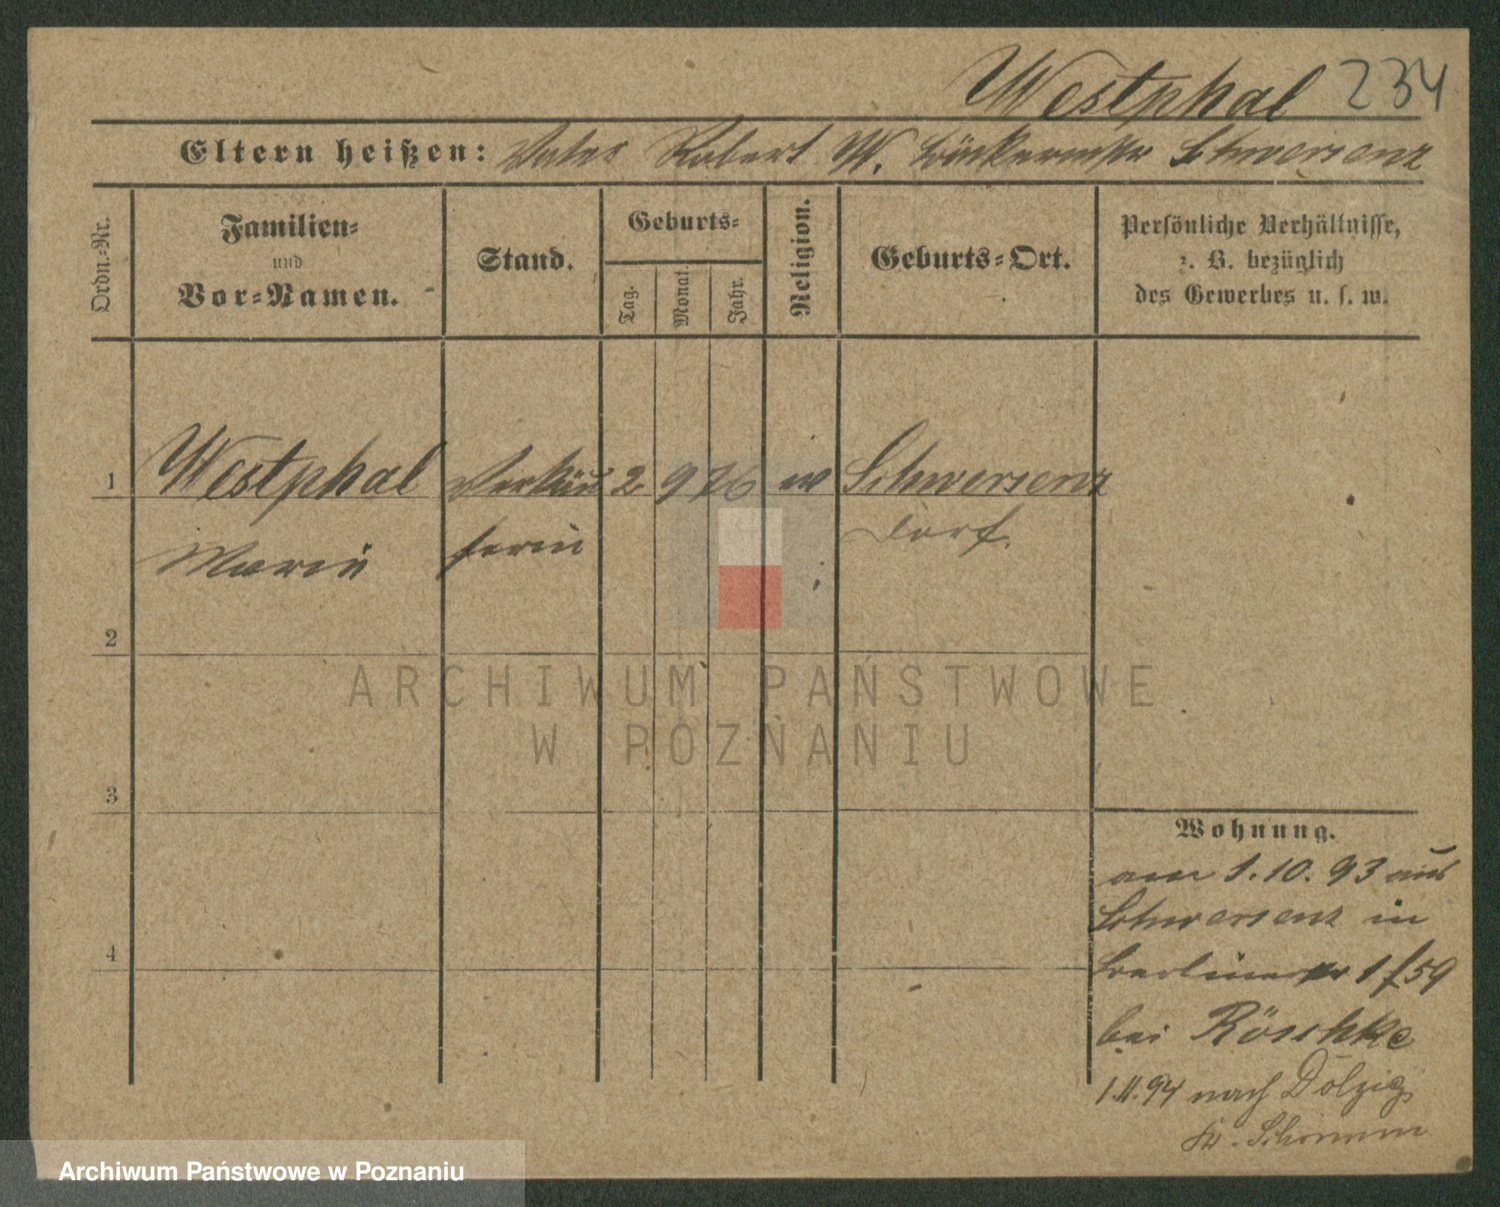 Westphal 234
Eltern heißen: Vater Robert W. Bäckermstr Schwersenz
Ordn.-Nr.
Familien-
und
Vor-Namen.
Stand.
Geburts-
Tag.
Monat.
Jahr.
Religion.
Geburts-Ort.
Persönliche Verhältnisse,
z. B. bezüglich
des Gewerbes u. s. w.
1 Westphal Verkäu 2 9 76 Schwersenz
Marie ferin Dorf.
2
3
4
ARCHIWUM PAŃSTWOWE
W POZNANIU
Wohnung.
am 1.10.93 aus
Schwersenz in
Berlinerstr 1 / 59
bei Röschke
1.11.94 nach Dolzig
Kr. Schrimm
Archiwum Państwowe w Poznaniu